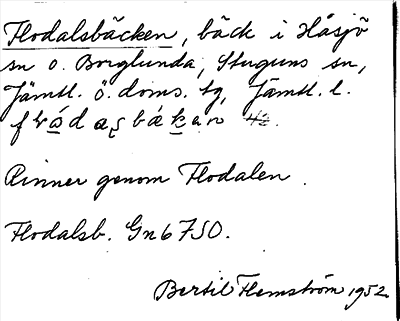 Flodalsbäcken, bäck i Håsjö
sn o. Borglunda, Stuguns sn,
Jämtl. ö. doms. tg, Jämtl. l.

Rinner genom Flodalen.
Flodalsb. Gn 6750.
Bertil Flemström 1952.